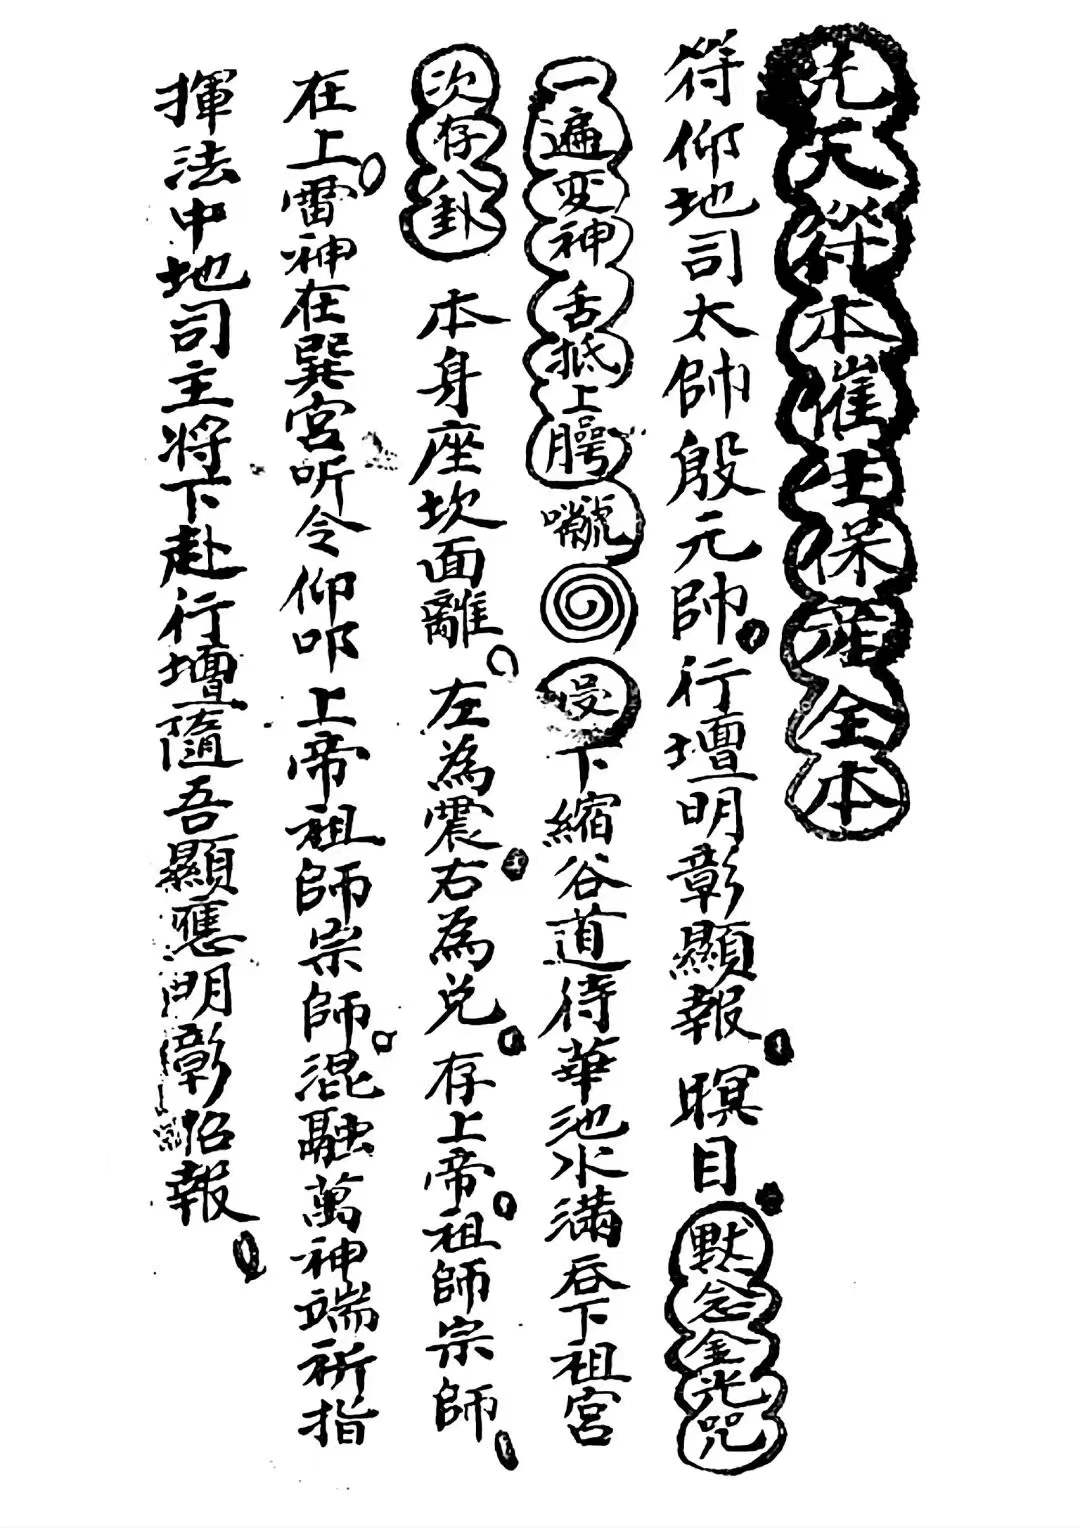 先天符本催生保産全本
符仰地司太帥殷元帥行壇明彰顯報瞑目默念金光咒
一遍変神舌抵上腭下縮谷道待華池水满吞下祖宮
次存八卦本身座坎面離左為震右為兑存上帝祖師宗師
在上雷神在巽宮听令仰叩上帝祖師宗師混融萬神端祈指
揮法中地司主将下赴行壇隨吾顯應明彰招報